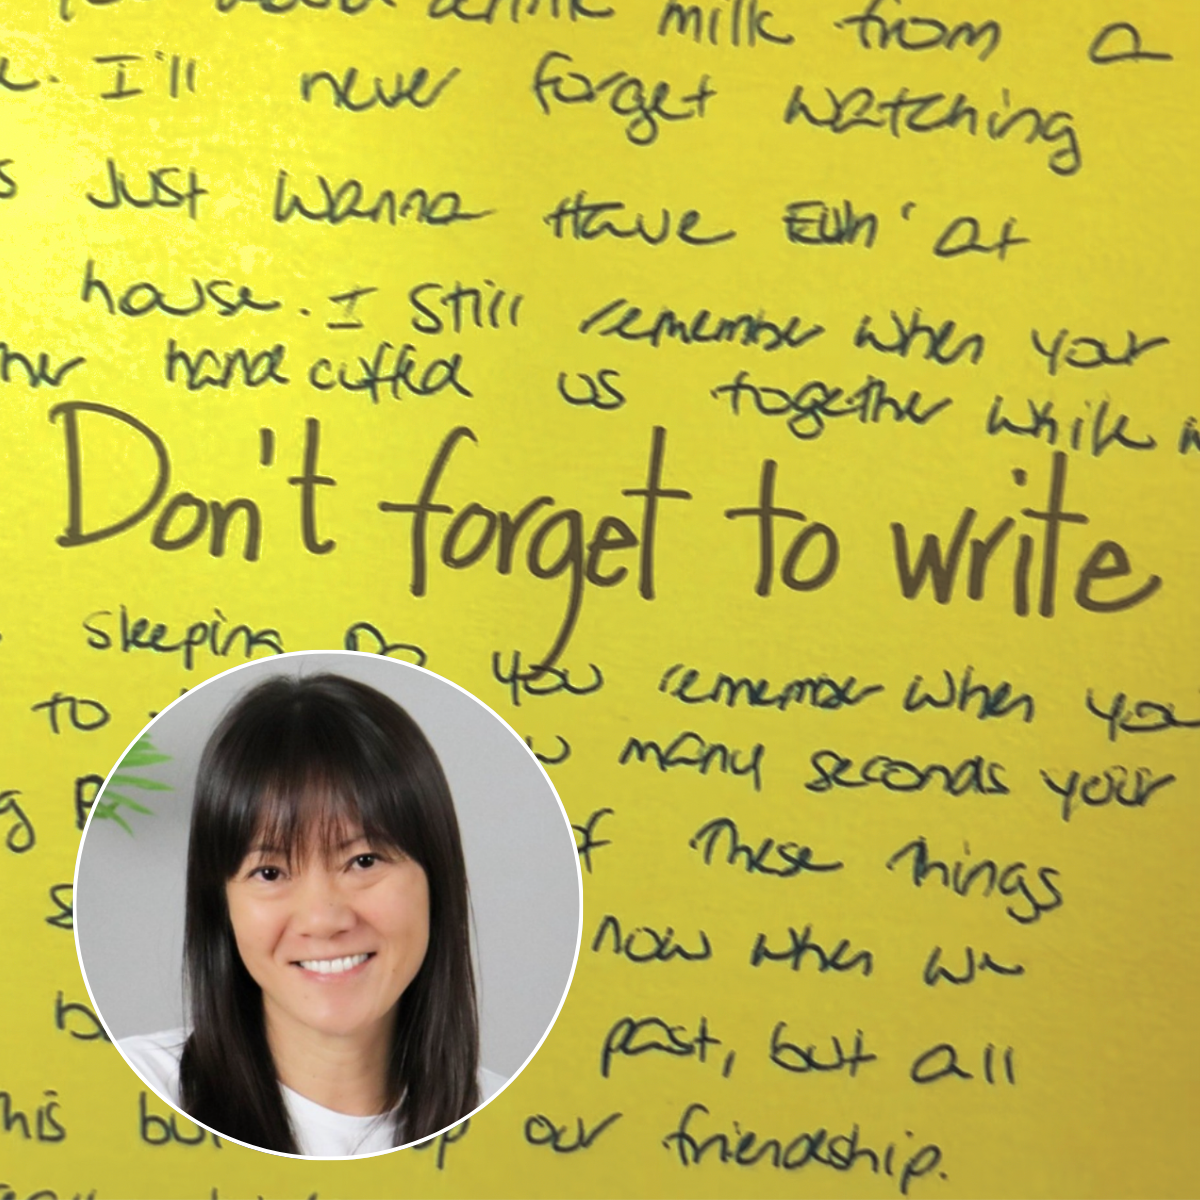 drink milk from a
I'll never forget watching
s Just Wanna Have Fun' at
house. I still remember when your
handcuffed us together while
Don't forget to write
sleeping Do you remember when you
to
many seconds your
g of these things
now when we
past, but all
this our friendship.